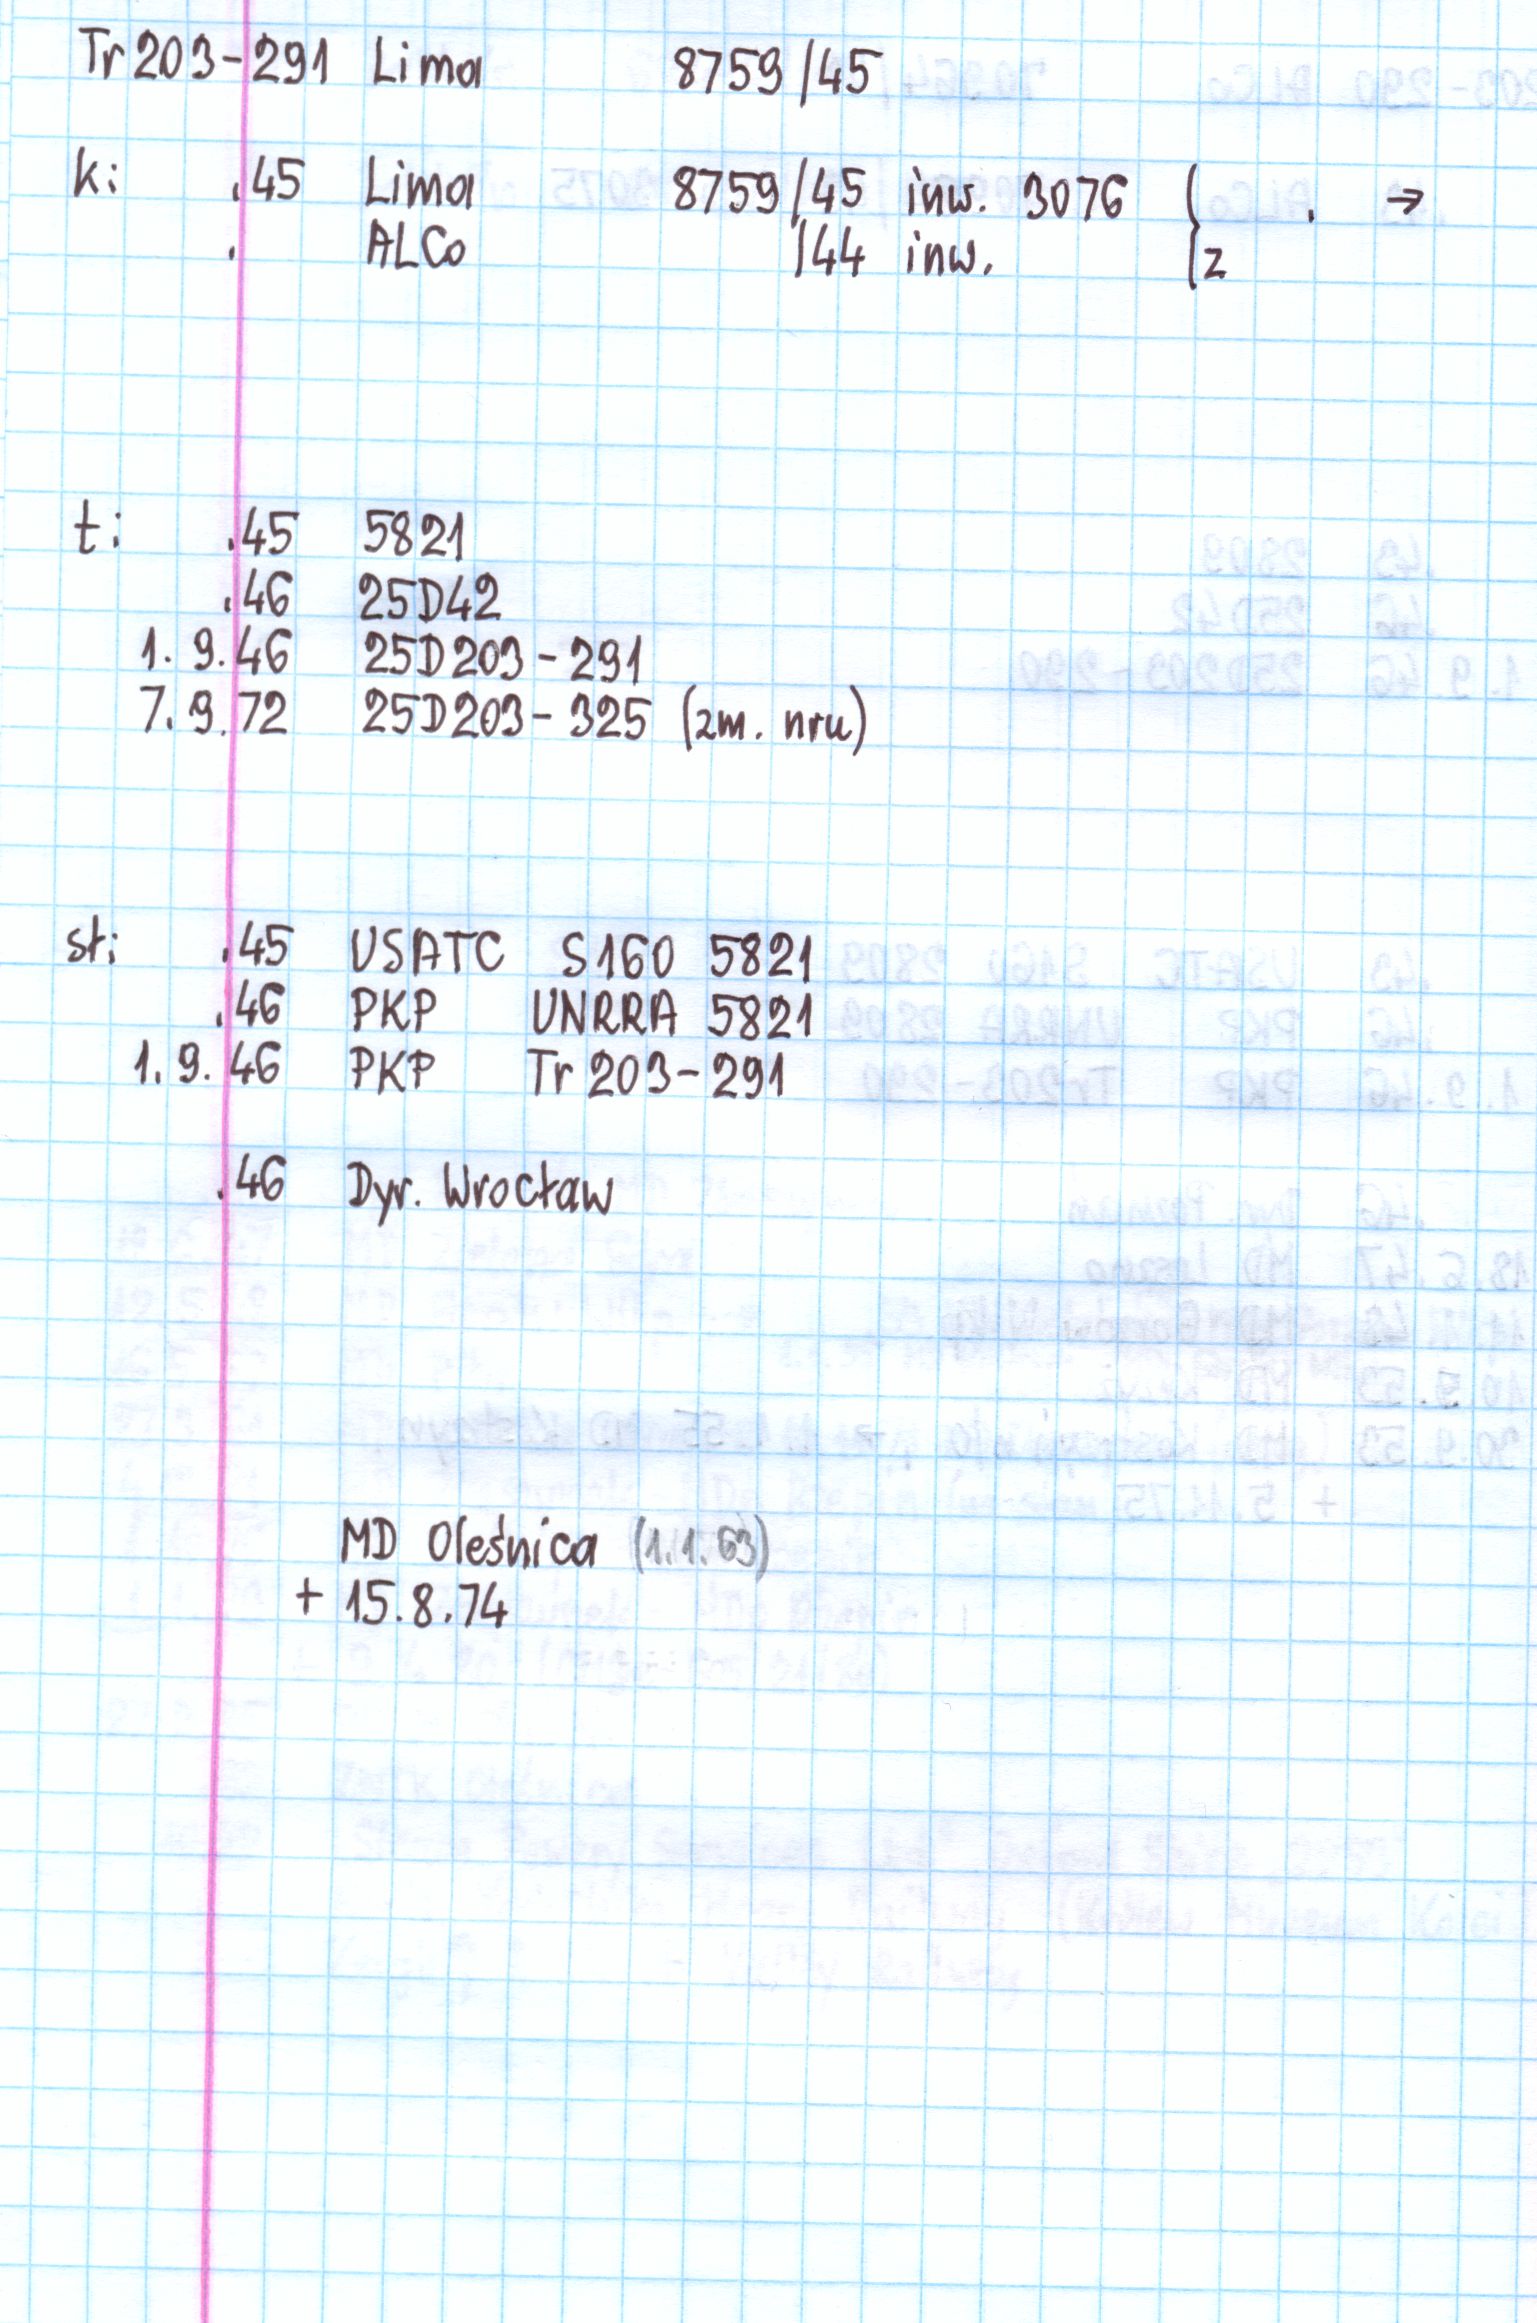 Tr 203-291 Lima 8759/45
k: .45 Lima 8759/45 inw. 3076 { . →
. ALCo /44 inw. { z
t: .45 5821
.46 25D42
1. 9. 46 25D203-291
7. 9. 72 25D203-325 (zm. nru)
sł: .45 USATC S160 5821
.46 PKP UNRRA 5821
1. 9. 46 PKP Tr 203-291
.46 Dyr. Wrocław
MD Oleśnica (1.1.63)
+ 15.8.74